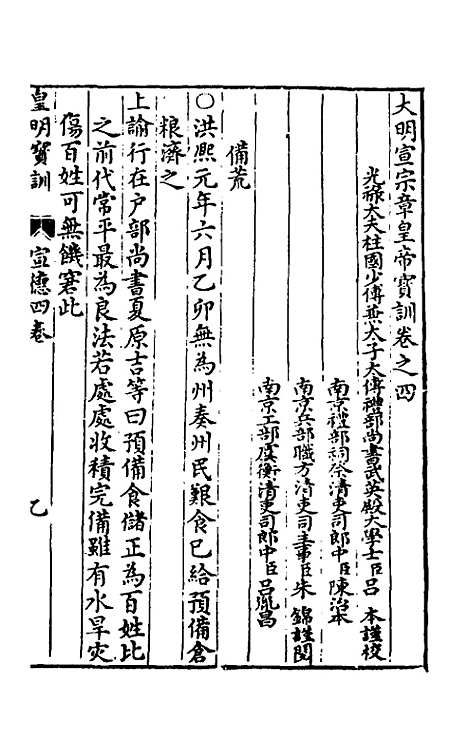 大明宣宗章皇帝寶訓卷之四
光祿大夫柱國少傅兼太子太傅禮部尚書武英殿大學士臣呂 本謹校
南京禮部祠祭清吏司郎中臣陳治本
南京兵部職方清吏司主事臣朱 錦謹閱
南京工部虞衡清吏司郎中臣呂胤昌
備荒
○洪熙元年六月乙卯無為州奏州民艱食已給預備倉
粮濟之
上諭行在户部尚書夏原吉等曰預備食儲正為百姓比
之前代常平最為良法若處處收積完備雖有水旱灾
傷百姓可無饑窘此
皇明寶訓 宣德四卷 乙